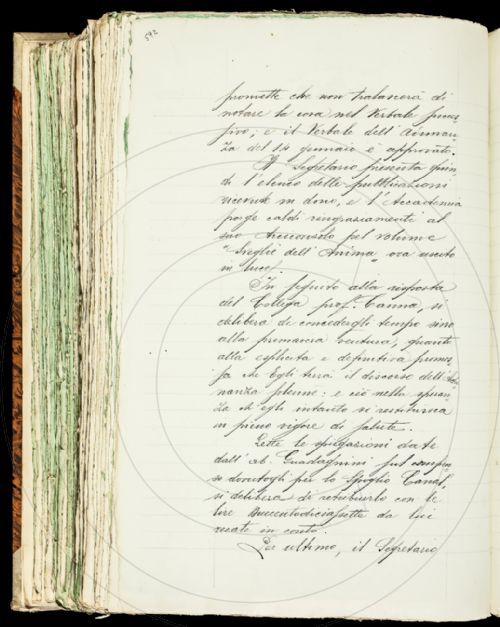 592
promette che non tralascerà di
notare la cosa nel Verbale succes-
sivo; e il Verbale dell'Adunan-
za del 14 gennaio è approvato.
Il Segretario presenta quin-
di l'elenco delle pubblicazioni
ricevute in dono, e l'Accademia
porge caldi ringraziamenti al
suo Arciconsolo pel volume
"Sveglie dell'Anima" ora uscito
in luce.
In seguito alla risposta
del Collega prof. Canna, si
delibera di concedergli tempo sino
alla primavera ventura, quanto
alla esplicita e definitiva promes-
sa ch'Egli terrà il discorso dell'Adu-
nanza solenne: e ciò nella speran-
za ch'egli intanto si restituisca
in pieno vigore di salute.
Lette le spiegazioni date
dall'ab. Guadagnini sul compen-
so dovutogli per lo spoglio Canal,
si delibera di retribuirlo con le
lire duecentodiciassette da lui
recate in conto.
Per ultimo, il Segretario